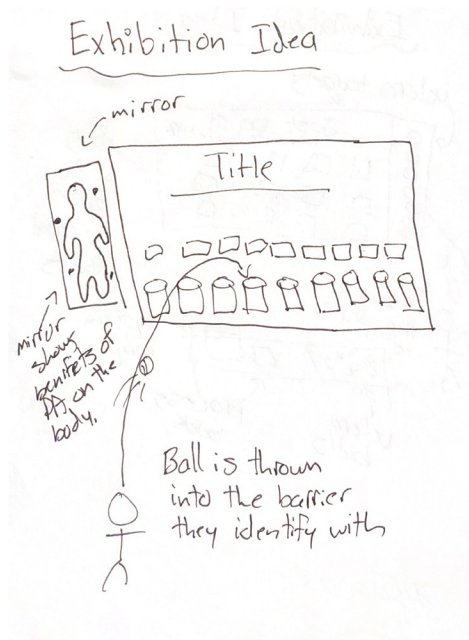 Exhibition Idea
mirror
Title
mirror
shows
benifets of
PA on the
body.
Ball is thrown
into the barrier
they identify with